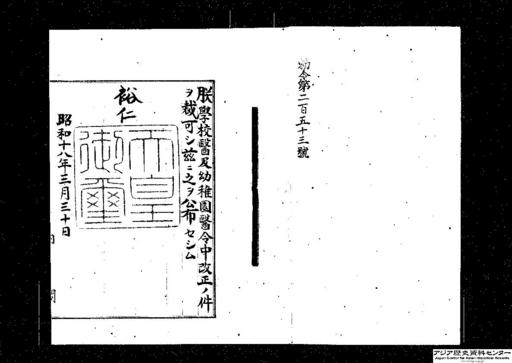 勅令第二百五十三號
朕學校醫及幼稚園醫令中改正ノ件
ヲ裁可シ茲ニ之ヲ公布セシム
裕仁
天皇御璽
昭和十八年三月三十日
アジア歴史資料センター
Japan Center for Asian Historical Records